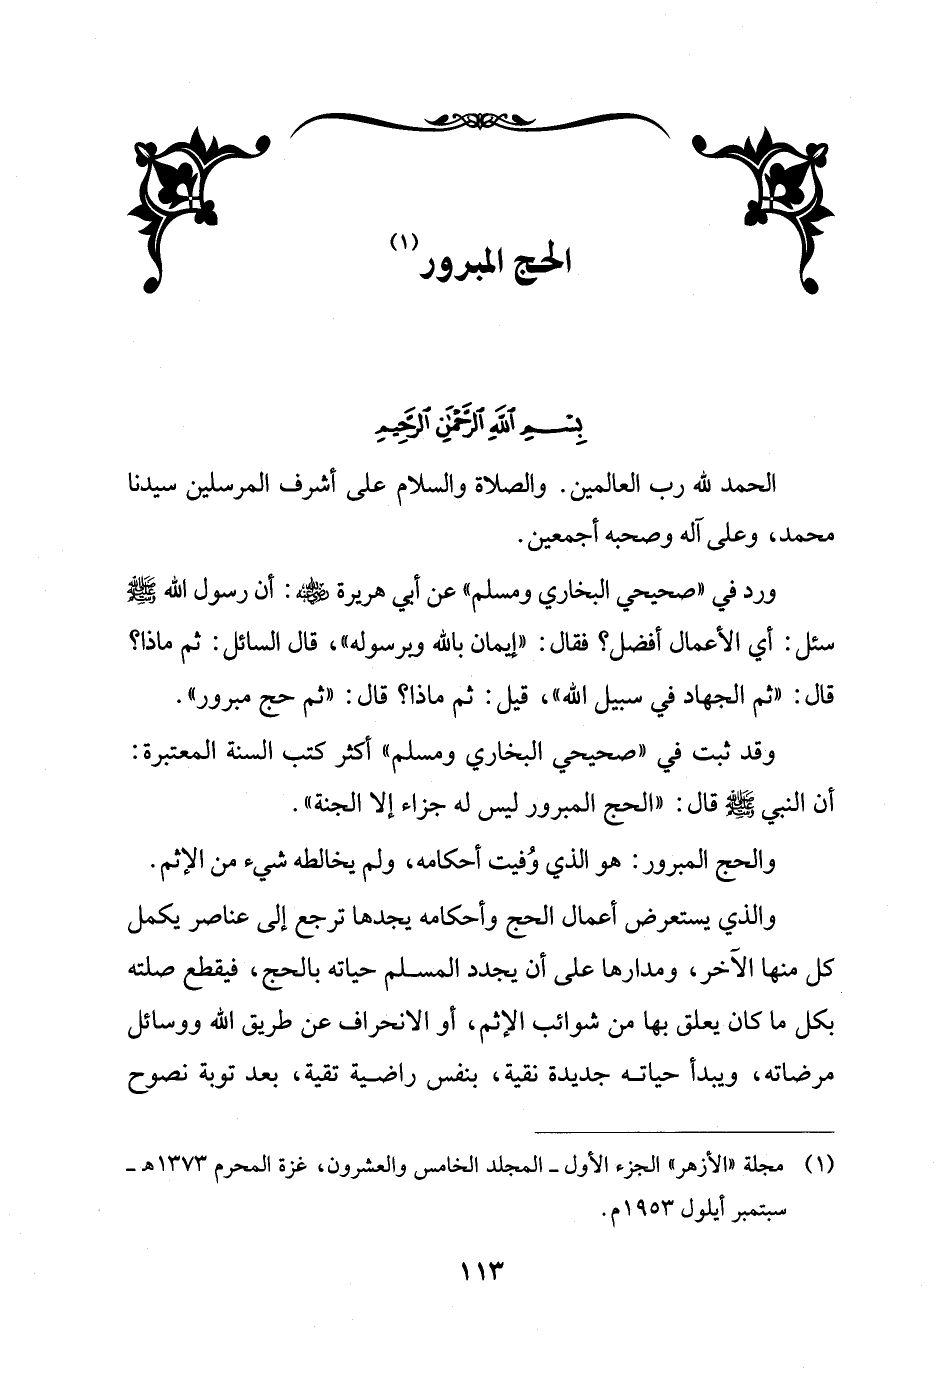 الحج المبرور (١)
بِسْمِ ٱللَّهِ ٱلرَّحْمَٰنِ ٱلرَّحِيمِ
الحمد لله رب العالمين. والصلاة والسلام على أشرف المرسلين سيدنا
محمد، وعلى آله وصحبه أجمعين.
ورد في «صحيحي البخاري ومسلم» عن أبي هريرة رضي الله عنه: أن رسول الله ﷺ
سئل: أي الأعمال أفضل؟ فقال: «إيمان بالله وبرسوله»، قال السائل: ثم ماذا؟
قال: «ثم الجهاد في سبيل الله»، قيل: ثم ماذا؟ قال: «ثم حج مبرور».
وقد ثبت في «صحيحي البخاري ومسلم» أكثر كتب السنة المعتبرة:
أن النبي ﷺ قال: «الحج المبرور ليس له جزاء إلا الجنة».
والحج المبرور: هو الذي وُفيت أحكامه، ولم يخالطه شيء من الإثم.
والذي يستعرض أعمال الحج وأحكامه يجدها ترجع إلى عناصر يكمل
كل منها الآخر، ومدارها على أن يجدد المسلم حياته بالحج، فيقطع صلته
بكل ما كان يعلق بها من شوائب الإثم، أو الانحراف عن طريق الله ووسائل
مرضاته، ويبدأ حياته جديدة نقية، بنفس راضية تقية، بعد توبة نصوح
(١) مجلة «الأزهر» الجزء الأول ـ المجلد الخامس والعشرون، غزة المحرم ١٣٧٣هـ ـ
سبتمبر أيلول ١٩٥٣م.
١١٣